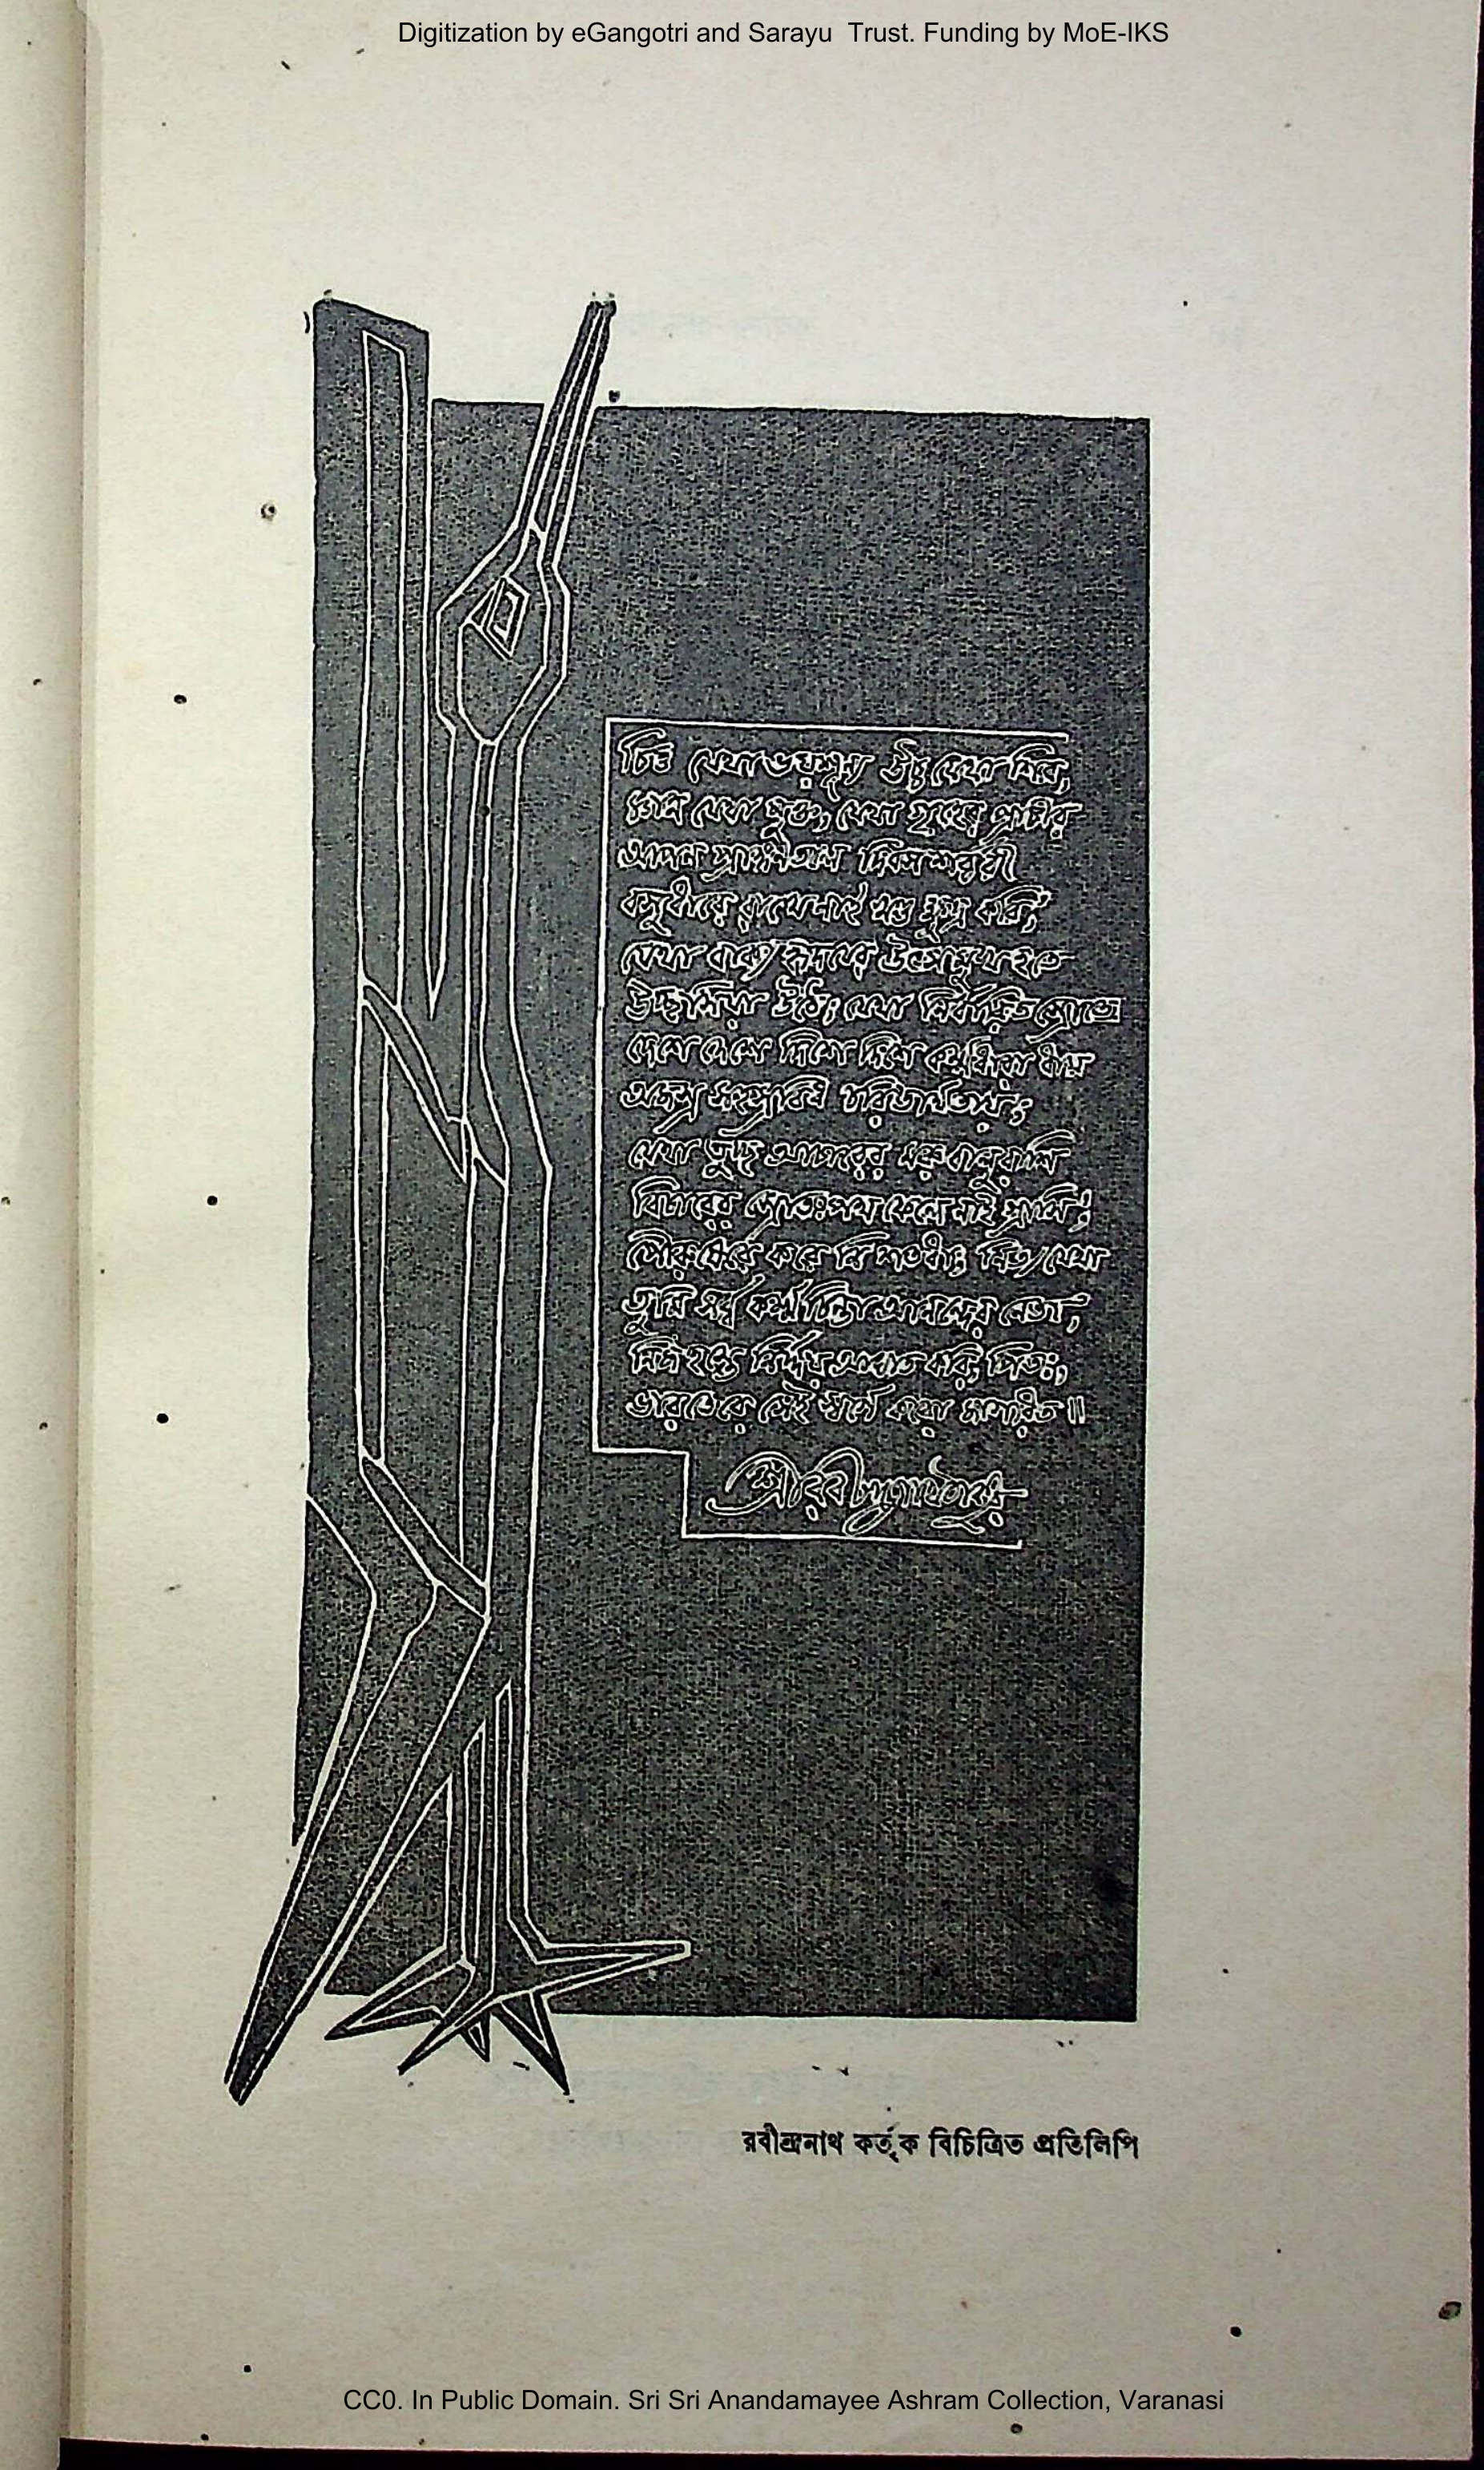 Digitization by eGangotri and Sarayu Trust. Funding by MoE-IKS
চিত্ত যেথা ভয়শূন্য উচ্চ যেথা শির,
জ্ঞান যেথা মুক্ত, যেথা গৃহের প্রাচীর
আপন প্রাঙ্গণতলে দিবসশর্বরী
বসুধারে রাখে নাই খণ্ড ক্ষুদ্র করি;
যেথা বাক্য হৃদয়ের উৎসমুখ হতে
উচ্ছ্বসিয়া উঠে; যেথা নির্বারিত স্রোতে
দেশে দেশে দিশে দিশে কর্ম্মধারা ধায়
অজস্র সহস্রবিধ চরিতার্থতায়;
যেথা তুচ্ছ আচারের মরু বালুরাশি
বিচারের স্রোতঃপথ ফেলে নাই গ্রাসি;
পৌরুষেরে করে নি শতধা; নিত্য যেথা
তুমি সর্ব্ব কর্ম্ম চিন্তা আনন্দের নেতা;
নিজ হস্তে নির্দ্দয় আঘাত করি, পিতঃ,
ভারতেরে সেই স্বর্গে করো জাগরিত॥
শ্রীরবীন্দ্রনাথ ঠাকুর
রবীন্দ্রনাথ কর্তৃক বিচিত্রিত প্রতিলিপি
CC0. In Public Domain. Sri Sri Anandamayee Ashram Collection, Varanasi